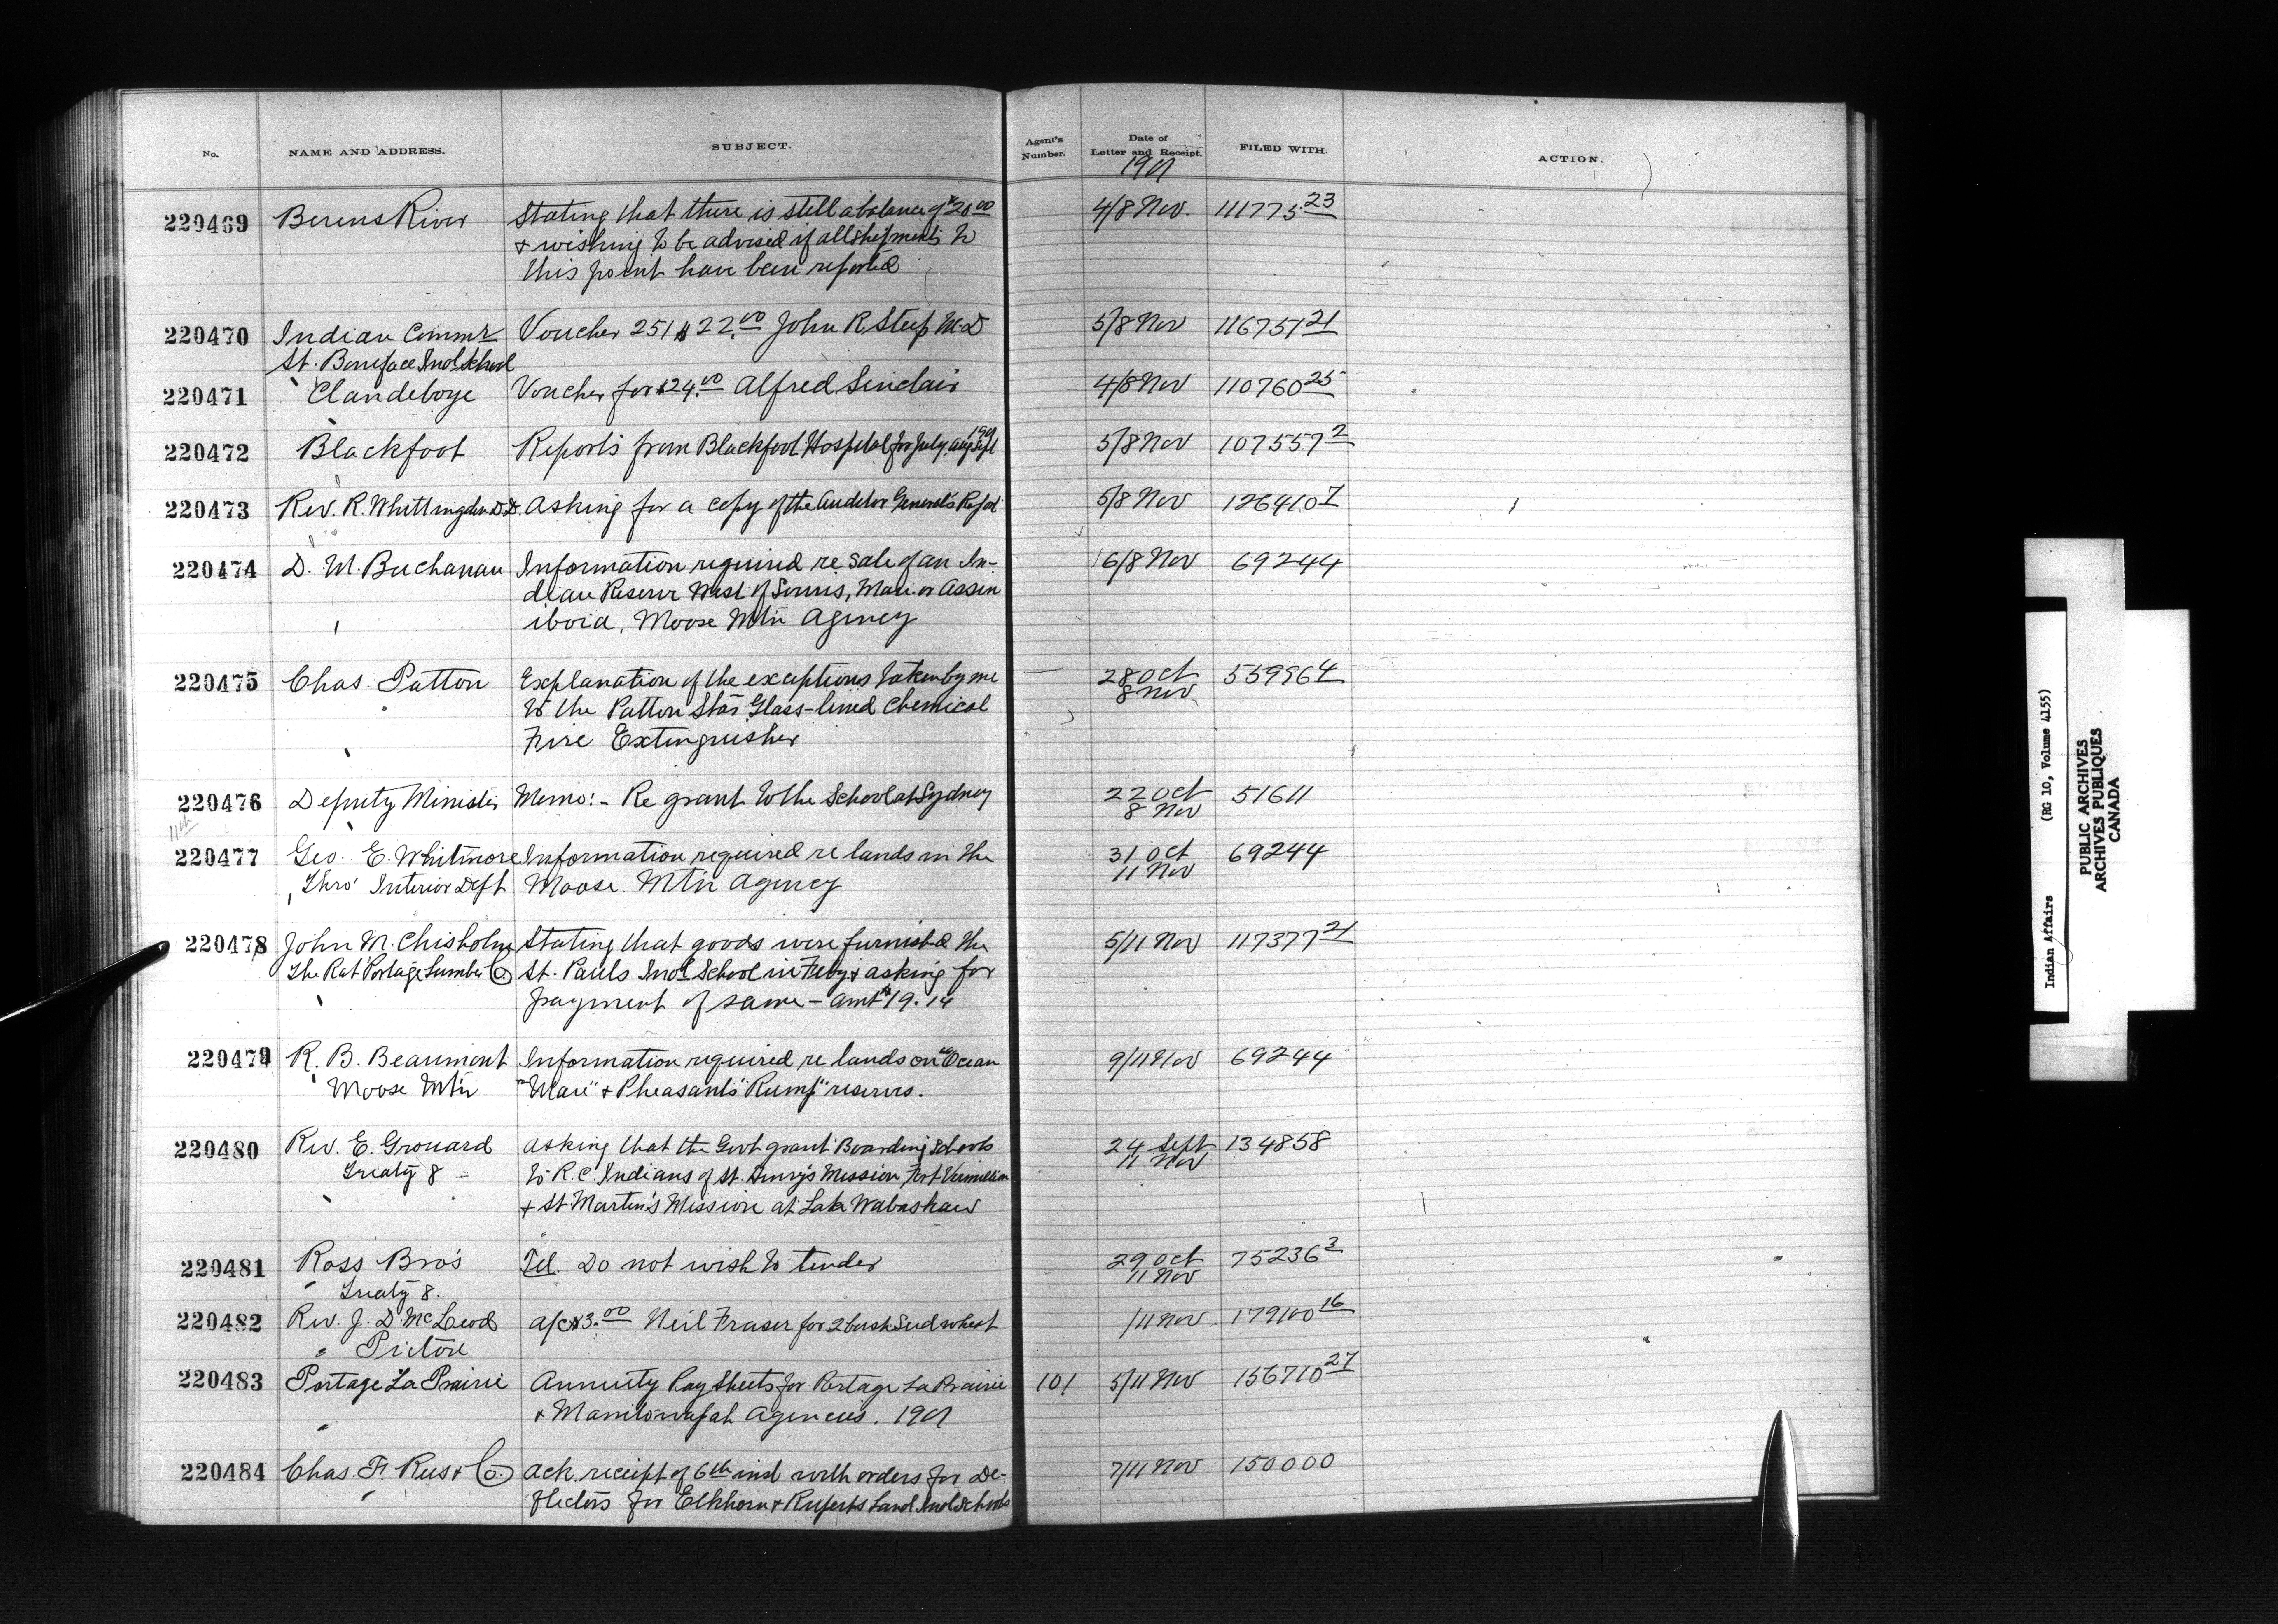 No. NAME AND ADDRESS. SUBJECT. Agent's Number. Date of Letter and Receipt. FILED WITH. ACTION.
1901
220469 Berens River Stating that there is still a balance of $20 00 4/8 Nov. 111775 23
& wishing to be advised if all shipments to
this point have been reported
220470 Indian Commr Voucher 251 $22.00 John R. Steep M.D 5/8 Nov 116751 21
St. Boniface Indl School
220471 Clandeboye Voucher for $24.00 Alfred Sinclair 4/8 Nov 110760 25
220472 Blackfoot Reports from Blackfoot Hospital for July, Aug Sept 1901 5/8 Nov 107557 2
220473 Rev. R. Whittington D.D. Asking for a copy of the Auditor General's Report 5/8 Nov 126410 7
220474 D. M. Buchanan Information required re sale of an In- 6/8 Nov 69244
dian Reserve West of Souris, Man. or Assin
iboia, Moose Mtn Agency
220475 Chas. Patton Explanation of the exceptions taken by me 28 Oct 8 Nov 55996 4
to the Patton Star Glass-lined Chemical
Fire Extinguisher
220476 Deputy Minister Memo:- Re grant to the School at Sydney 22 Oct 8 Nov 51611
11th
220477 Geo. E. Whitmore Information required re lands in the 31 Oct 11 Nov 69244
Thro' Interior Dept Moose Mtn Agency
220478 John M. Chisholm Stating that goods were furnished the 5/11 Nov 117377 21
The Rat Portage Lumber Co St. Pauls Indl School in Feby & asking for
payment of same - amt $19.14
220479 R. B. Beaumont Information required re lands on "Ocean 9/11 Nov 69244
Moose Mtn "Man" & Pheasants "Rump" reserves.
220480 Rev. E. Grouard asking that the Govt grant Boarding Schools 24 Sept 11 Nov 134858
Treaty 8 - to R.C. Indians of St. Henry's Mission, Fort Vermillion
& St Martin's Mission at Lake Wabaskaw
220481 Ross Bro's Tel. Do not wish to tender 29 Oct 11 Nov 75236 3
Treaty 8.
220482 Rev. J. D. McLeod a/c $3.00 Neil Fraser for 2 bush Seed wheat /11 Nov. 179100 16
Pictou
220483 Portage La Prairie Annuity Pay Sheets for Portage La Prairie 101 5/11 Nov 156710 27
& Manitowapah Agencies. 1901
220484 Chas. F. Rus & Co. Ack. receipt of 6th inst with orders for De- 7/11 Nov 150000
flectors for Elkhorn & Ruperts Land Indl Schools
Indian Affairs (RG 10, Volume 4155)
PUBLIC ARCHIVES
ARCHIVES PUBLIQUES
CANADA